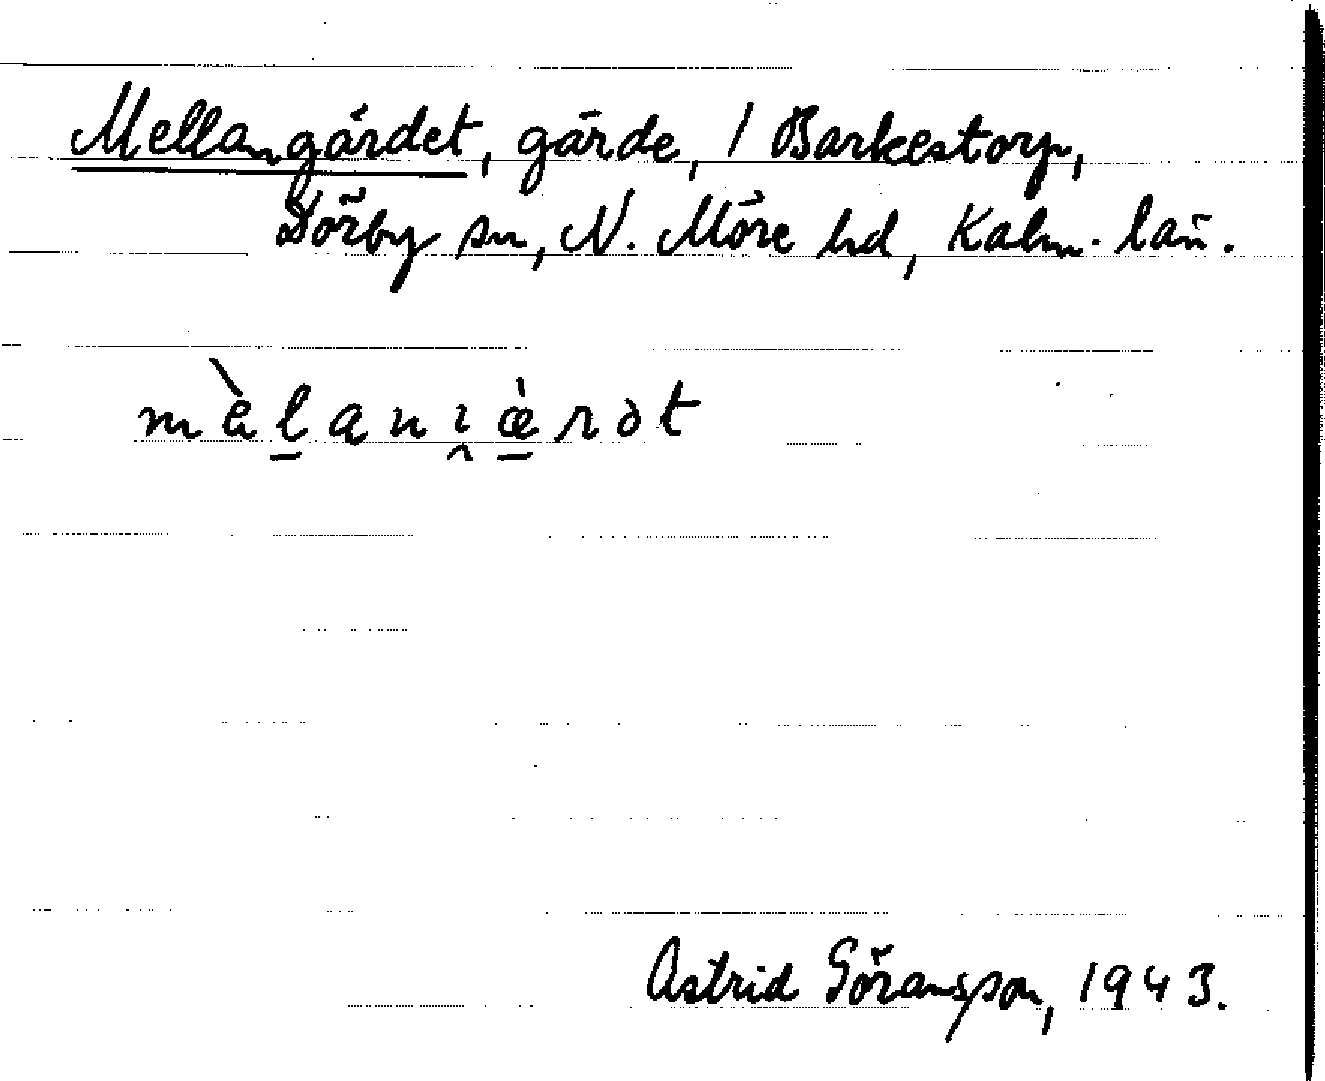 Mellangärdet, gärde, / Barkestorp,
Dörby sn, N. Möre hd, Kalm. län.
mèl̲anı̯æ̲̀rət
Astrid Göransson, 1943.